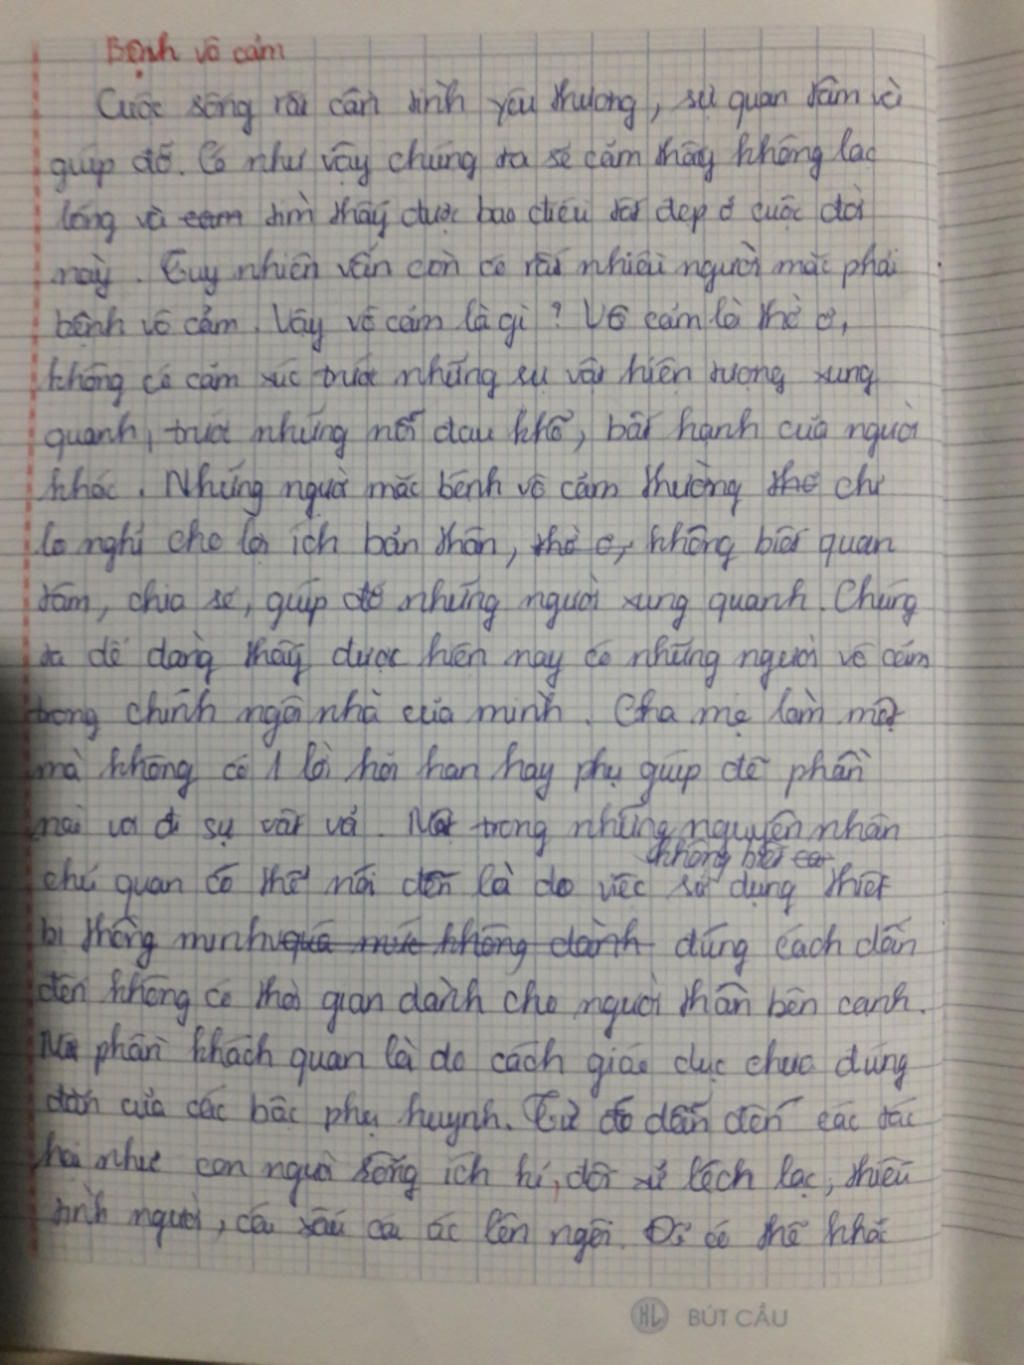 Bệnh vô cảm
Cuộc sống rất cần tình yêu thương, sự quan tâm và
giúp đỡ. Có như vậy chúng ta sẽ cảm thấy không lạc
lõng và cảm tìm thấy được bao điều tốt đẹp ở cuộc đời
này. Tuy nhiên vẫn còn có rất nhiều người mắc phải
bệnh vô cảm. Vậy vô cảm là gì? Vô cảm là thờ ơ,
không có cảm xúc trước những sự vật hiện tượng xung
quanh, trước những nỗi đau khổ, bất hạnh của người
khác. Những người mắc bệnh vô cảm thường thờ chỉ
lo nghĩ cho lợi ích bản thân, thờ ơ, không biết quan
tâm, chia sẻ, giúp đỡ những người xung quanh. Chúng
ta dễ dàng thấy được hiện nay có những người vô cảm
trong chính ngôi nhà của mình. Cha mẹ làm mệt
mà không có 1 lời hỏi han hay phụ giúp để phần
nào vơi đi sự vất vả. Một trong những nguyên nhân
không biết
chủ quan có thể nói đến là do việc sử dụng thiết
bị thông minh quá mức không dành đúng cách dẫn
đến không có thời gian dành cho người thân bên cạnh.
Một phần khách quan là do cách giáo dục chưa đúng
đắn của các bậc phụ huynh. Từ đó dẫn đến các tác
hại như con người sống ích kỉ, đối xử lệch lạc, thiếu
tình người, cái xấu cái ác lên ngôi. Để có thể khắc
HL BÚT CẦU